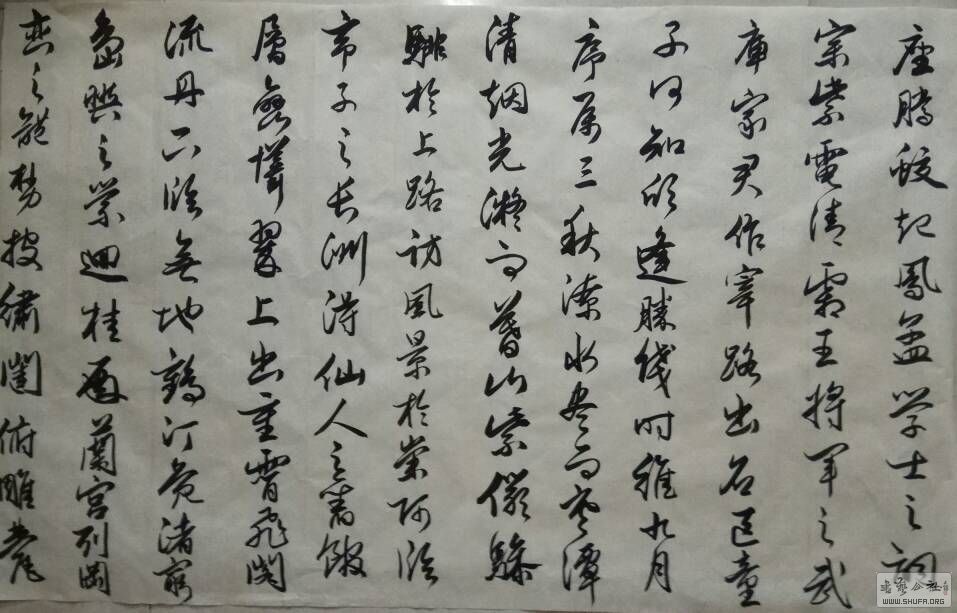 座騰蛟起鳳孟学士之詞
宗紫電清霜王将軍之武
庫家君作宰路出名區童
子何知躬逢勝餞時維九月
序属三秋潦水盡而寒潭
清烟光凝而暮山紫儼驂
騑於上路訪風景於崇阿臨
帝子之長洲得仙人之舊館
層巒聳翠上出重霄飛閣
流丹下臨無地鶴汀鳧渚窮
島嶼之縈迴桂殿蘭宫列岡
巒之體勢披繡闥俯雕甍
书艺公社
WWW.SHUFA.ORG